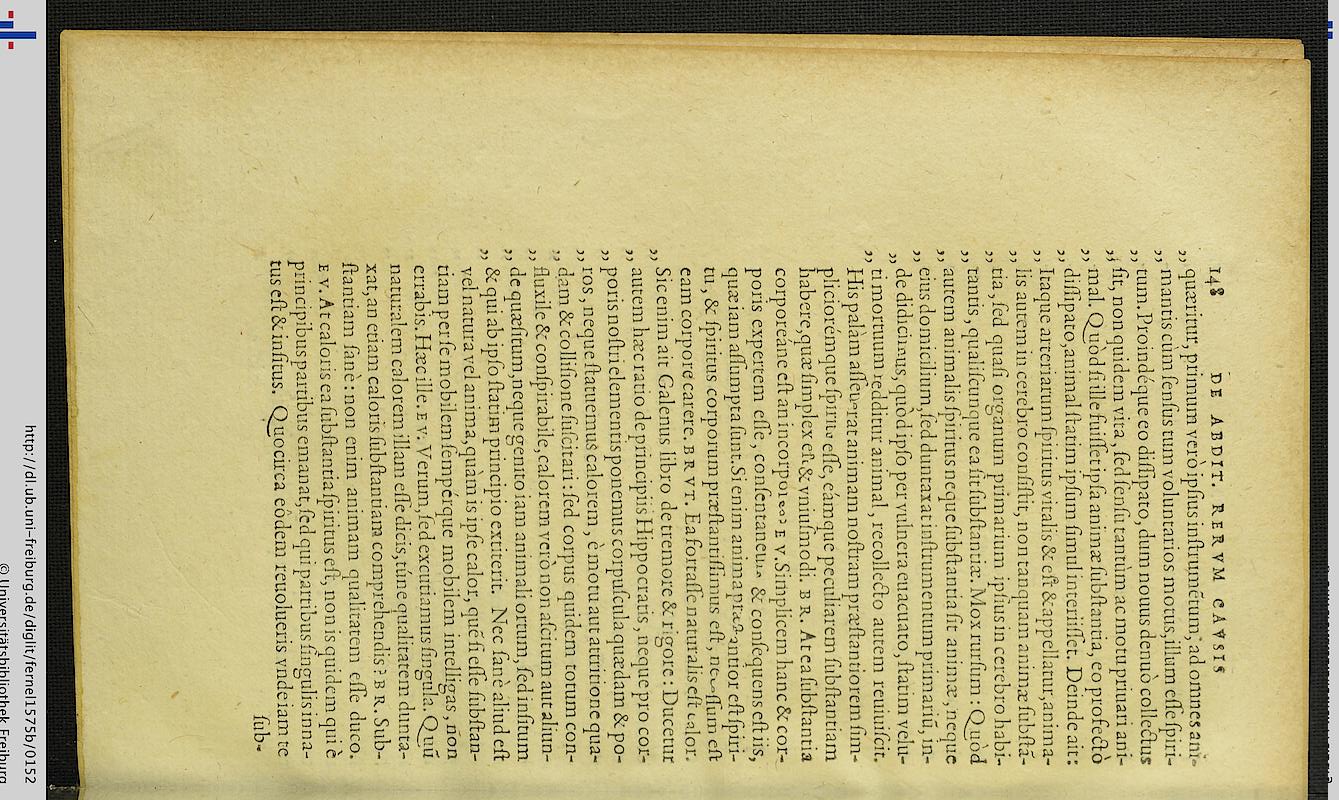 148 DE ABDIT. RERVM CAVSIS
„ quæritur, primum verò ipsius instrumẽtum, ad omnes ani-
„ mantis cum sensus tum voluntarios motus, illum esse spiri-
„ tum. Proindéque eo dissipato, dum nouus denuò collectus
„ sit, non quidem vita, sed sensu tantùm ac motu priuari ani-
„ mal. Quòd si ille fuisset ipsa animæ substantia, eo profectò
„ dissipato, animal statim ipsum simul interiisset. Deinde ait:
„ Itaque arteriarum spiritus vitalis & est & appellatur, anima-
„ lis autem in cerebro consistit, non tanquam animæ substã-
„ tia, sed quasi organum primarium ipsius in cerebro habi-
„ tantis, qualiscunque ea sit substantiæ. Mox rursum: Quòd
„ autem animalis spiritus neque substantia sit animæ, neque
„ eius domicilium, sed duntaxat instrumentum primariũ, in-
„ de didicimus, quòd ipso per vulnera euacuato, statim velu-
„ ti mortuum redditur animal, recollecto autem reuiuiscit.
His palàm asseuerat animam nostram præstantiorem sim-
pliciorémque spiritu esse, eámque peculiarem substantiam
habere, quæ simplex est & vniusmodi. BR. At ea substantia
corporéane est an incorporea? EV. Simplicem hanc & cor-
poris expertem esse, consentaneum & consequens est iis,
quæ iam assumpta sunt. Si enim anima præstantior est spiri-
tu, & spiritus corporum præstantissimus est, necessum est
eam corpore carere. BRVT. Ea fortasse naturalis est calor.
„ Sic enim ait Galenus libro de tremore & rigore: Ducetur
„ autem hæc ratio de principiis Hippocratis, neque pro cor-
„ poris nostri elementis ponemus corpuscula quædam & po-
„ ros, neque statuemus calorem, è motu aut attritione qua-
„ dam & collisione suscitari: sed corpus quidem totum con-
„ fluxile & conspirabile, calorem verò non ascitum aut aliun-
„ de quæsitum, neque genito iam animali ortum, sed insitum
„ & qui ab ipso statim principio extiterit. Nec sanè aliud est
vel natura vel anima, quàm is ipse calor, quẽ si esse substan-
tiam per se mobilem sempérque mobilem intelligas, non
errabis. Hæc ille. EV. Verum, sed excutiamus singula. Quũ
naturalem calorem illam esse dicis, túne qualitatem dunta-
xat, an etiam caloris substantiam comprehendis? BR. Sub-
stantiam sanè: non enim animam qualitatem esse duco.
EV. At caloris ea substantia spiritus est, non is quidem qui è
principibus partibus emanat, sed qui partibus singulis inna-
tus est & insitus. Quocirca eôdem reuolueris vnde iam te
sub-
http://dl.ub.uni-freiburg.de/diglit/fernel1575b/0152
© Universitätsbibliothek Freiburg